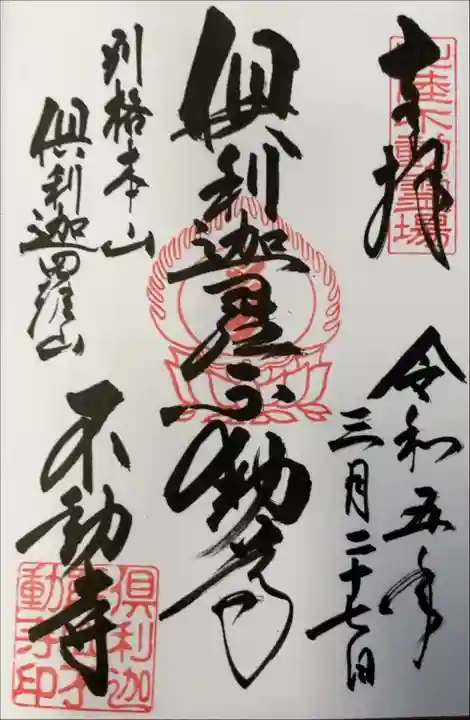 奉拝
令和五年
三月二十七日
俱利迦羅不動尊
別格本山
俱利迦羅山
不動寺
北陸不動霊場
俱利迦
動寺印